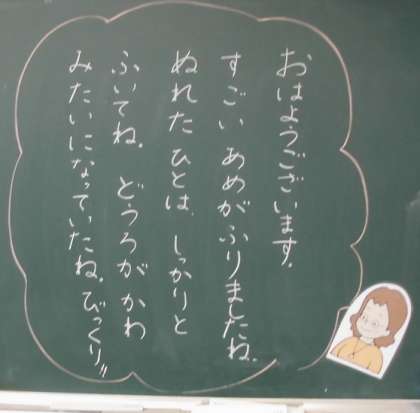 おはようございます。
すごい あめがふりましたね。
ぬれた ひとは、しっかりと
ふいてね。 どうろが かわ
みたいになっていたね。びっくり!!